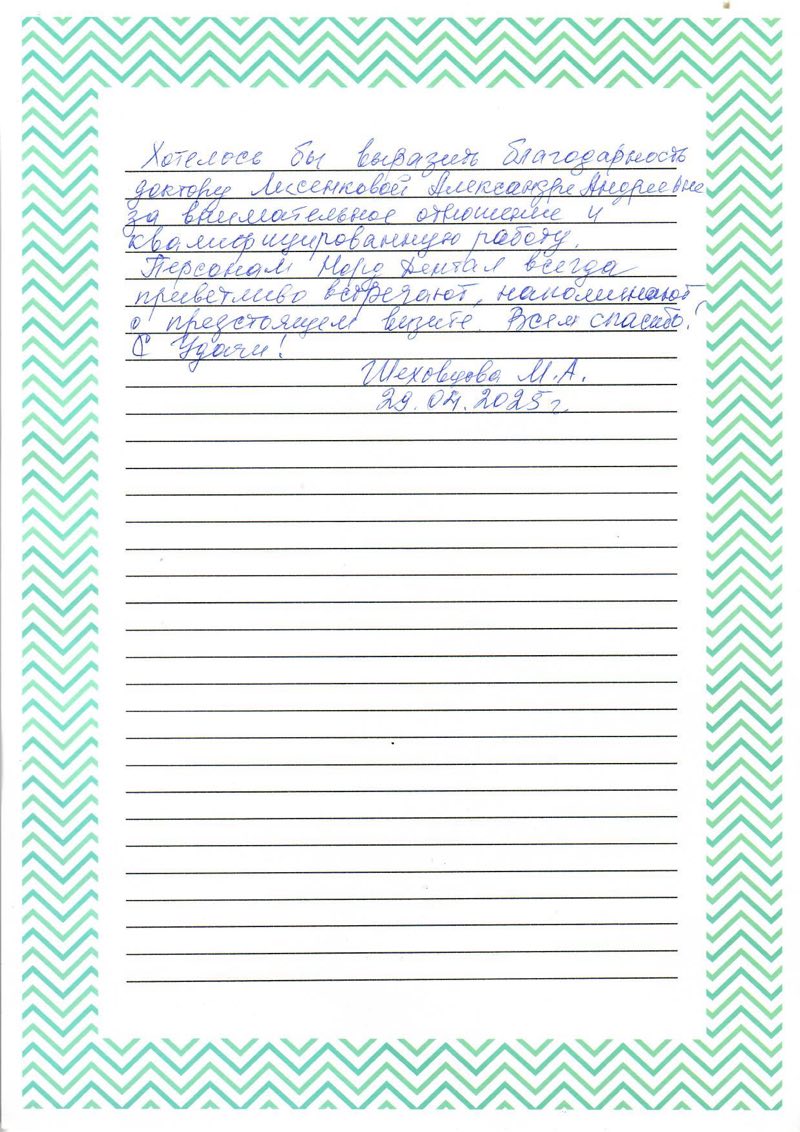 Хотелось бы выразить благодарность
доктору Лисенковой Александре Андреевне
за внимательное отношение и
квалифицированную работу.
Персонал Норд Дентал всегда
приветливо встречают, напоминают
о предстоящем визите. Всем спасибо!
Удачи!
Шеховцова М.А.
29.04.2025г.